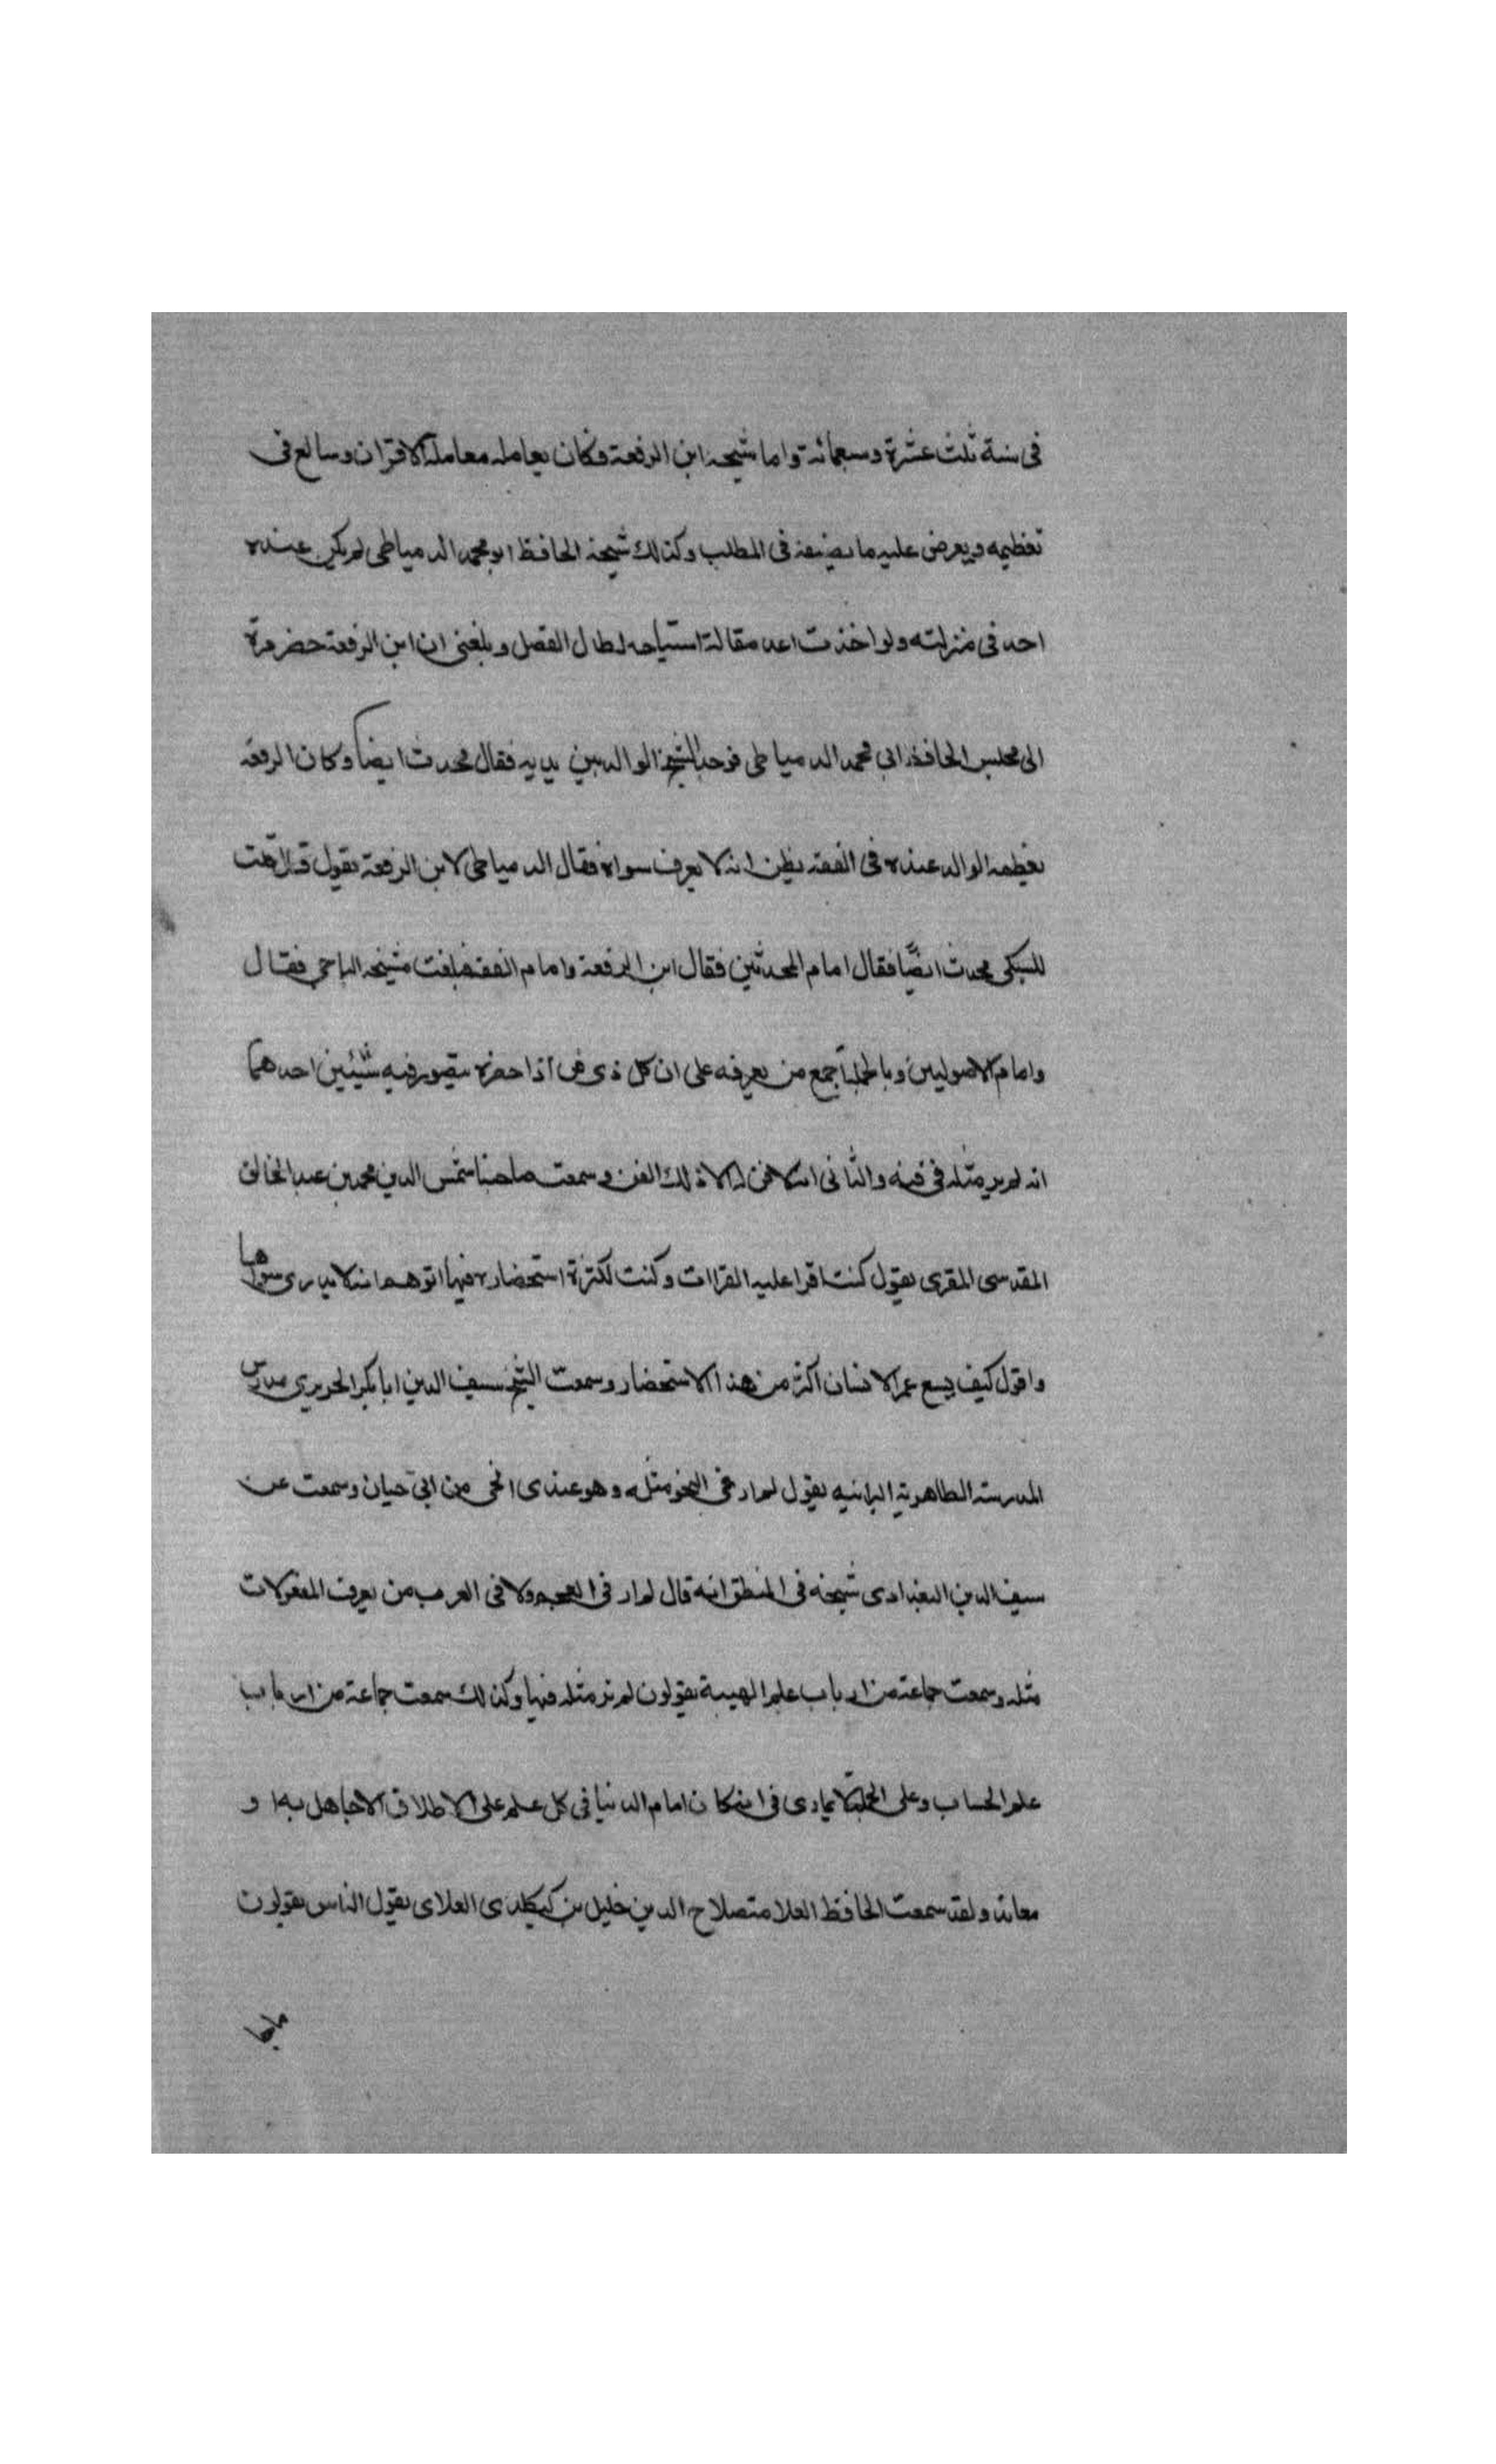 فى سنة ثلث عشرة وسبعمائة واما شيخه ابن الرفعة فكان يعامله معاملة الاقران ويبالغ فى
تعظيمه ويعرض عليه ما يصنفه فى المطلب وكذلك شيخه الحافظ ابو محمد الدمياطى لم يكن عنده
احد فى منزلته ولو اخذت اعد مقالة اشياخه لطال الفصل وبلغنى ان ابن الرفعة حضر مرة
الى مجلس الحافظ ابى محمد الدمياطى فوجد الشيخ الوالد بين يديه فقال محدث ايضا وكان الرفعة
يعظمه الوالد عنده فى الفقه يظن انه لا يعرف سواه فقال الدمياطى لابن الرفعة يقول قال قلت
للسبكى محدث ايضا فقال امام المحدثين فقال ابن الرفعة وامام الفقه فبلغت شيخه الباجى فقال
وامام الاصوليين وبالجملة اجمع من يعرفه على ان كل ذى فن اذا حضره يتصور فيه شيئين احدهما
انه لم ير مثله فى فنه والثانى انه لا فن له الا ذلك الفن وسمعت صاحبنا شمس الدين محمد بن عبد الخالق
المقدسى المقرى يقول كنت اقرا عليه القراات وكنت لكثرة استحضاره فيها اتوهم انه لا يدرى سواها
واقول كيف يسع عمر الانسان اكثر من هذا الاستحضار وسمعت الشيخ سيف الدين ابا بكر الحريري مدرس
المدرسة الظاهرية البرانيه يقول لم ار فى النحو مثله وهو عندى انحى من ابى حيان وسمعت عن
سيف الدين البغدادى شيخه فى المنطق انه قال لم ار فى العجم ولا فى العرب من يعرف المعقولات
مثله وسمعت جماعة من ارباب علم الهيية يقولون لم نر مثله فيها وكذلك سمعت جماعة من ارباب
علم الحساب وعلى الجملة لا يمارى فى انه كان امام الدنيا فى كل علم على الاطلاق الا جاهل به او
معاند ولقد سمعت الحافظ العلامة صلاح الدين خليل بن كيكلدى العلاى يقول الناس يقولون